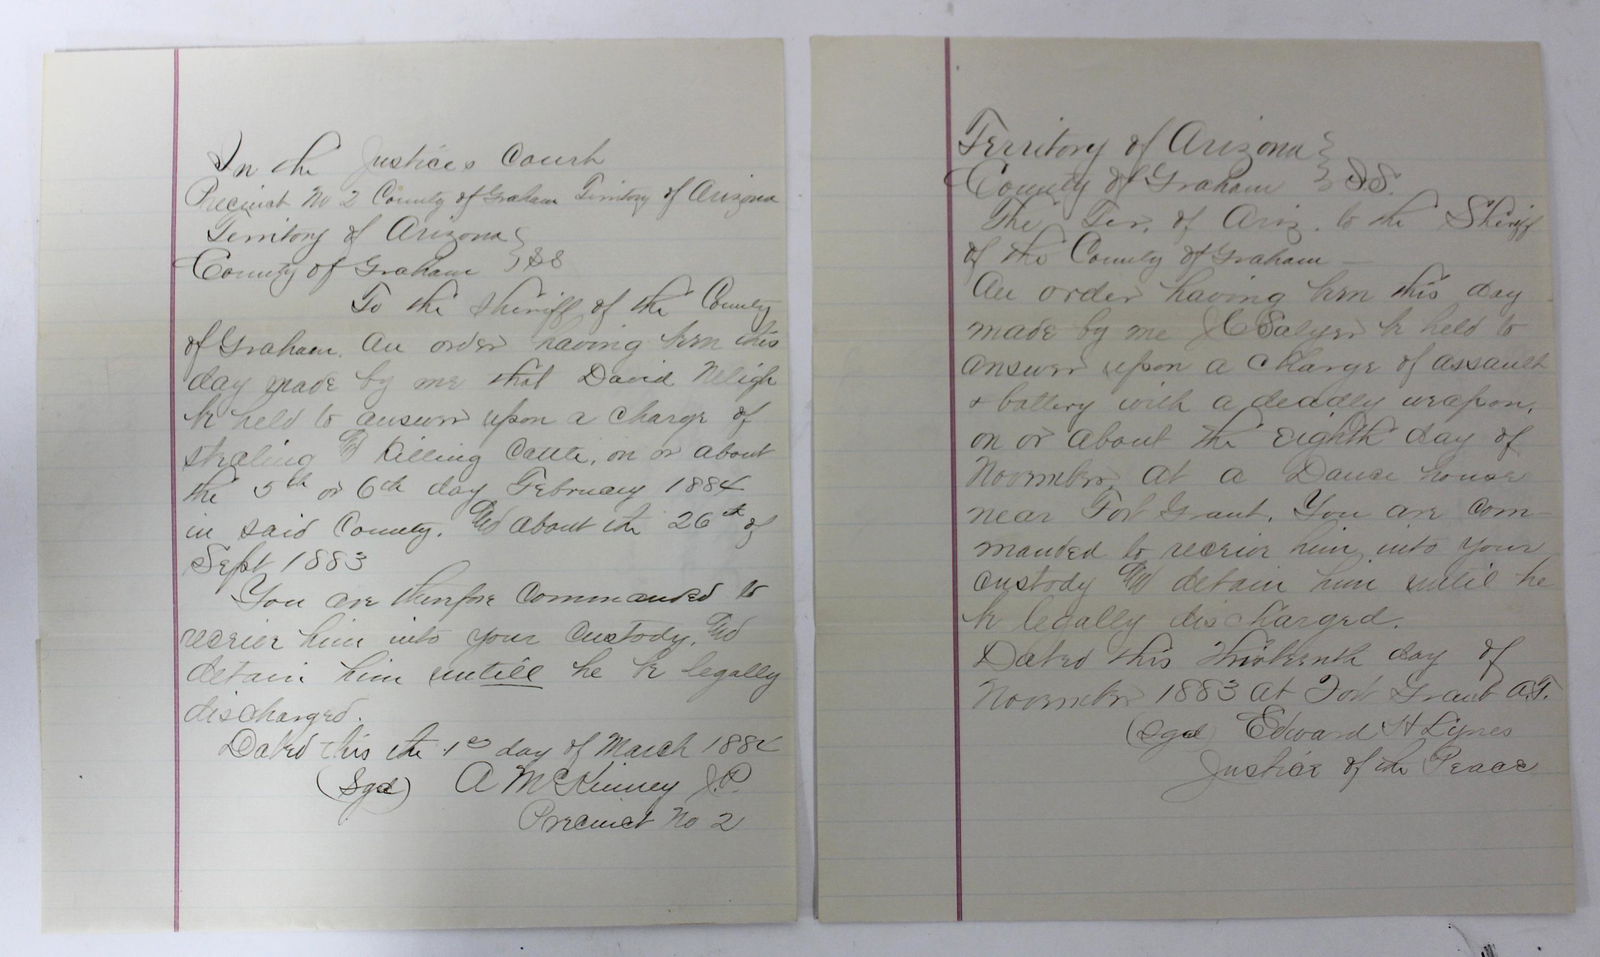 In the Justices Court
Precinct No 2 County of Graham Territory of Arizona
Territory of Arizona }
County of Graham } SS
To the Sheriff of the County
of Graham. An order having been this
day made by me that David Neligh
be held to answer upon a charge of
stealing And Killing Cattle, on or about
the 5th or 6th day February 1884
in said County. And about the 26th of
Sept 1883
You are therefore Commanded to
receive him into your Custody. And
detain him untill he be legally
discharged.
Dated this the 1st day of March 1884
(Sgd) A McKinney J.P.
Precinct No 2
Territory of Arizona }
County of Graham } SS.
The Ter. of Ariz. to the Sheriff
of the County of Graham —
An order having been this day
made by me J C Salyer be held to
answer upon a Charge of assault
+ battery with a deadly weapon,
on or about the Eighth day of
November, at a Dance house
near Fort Grant. You are com-
manded to receive him into your
custody And detain him until he
be legally discharged.
Dated this Thirteenth day of
November 1883 at Fort Grant A.T.
(Sgd) Edward H Lynes
Justice of the Peace